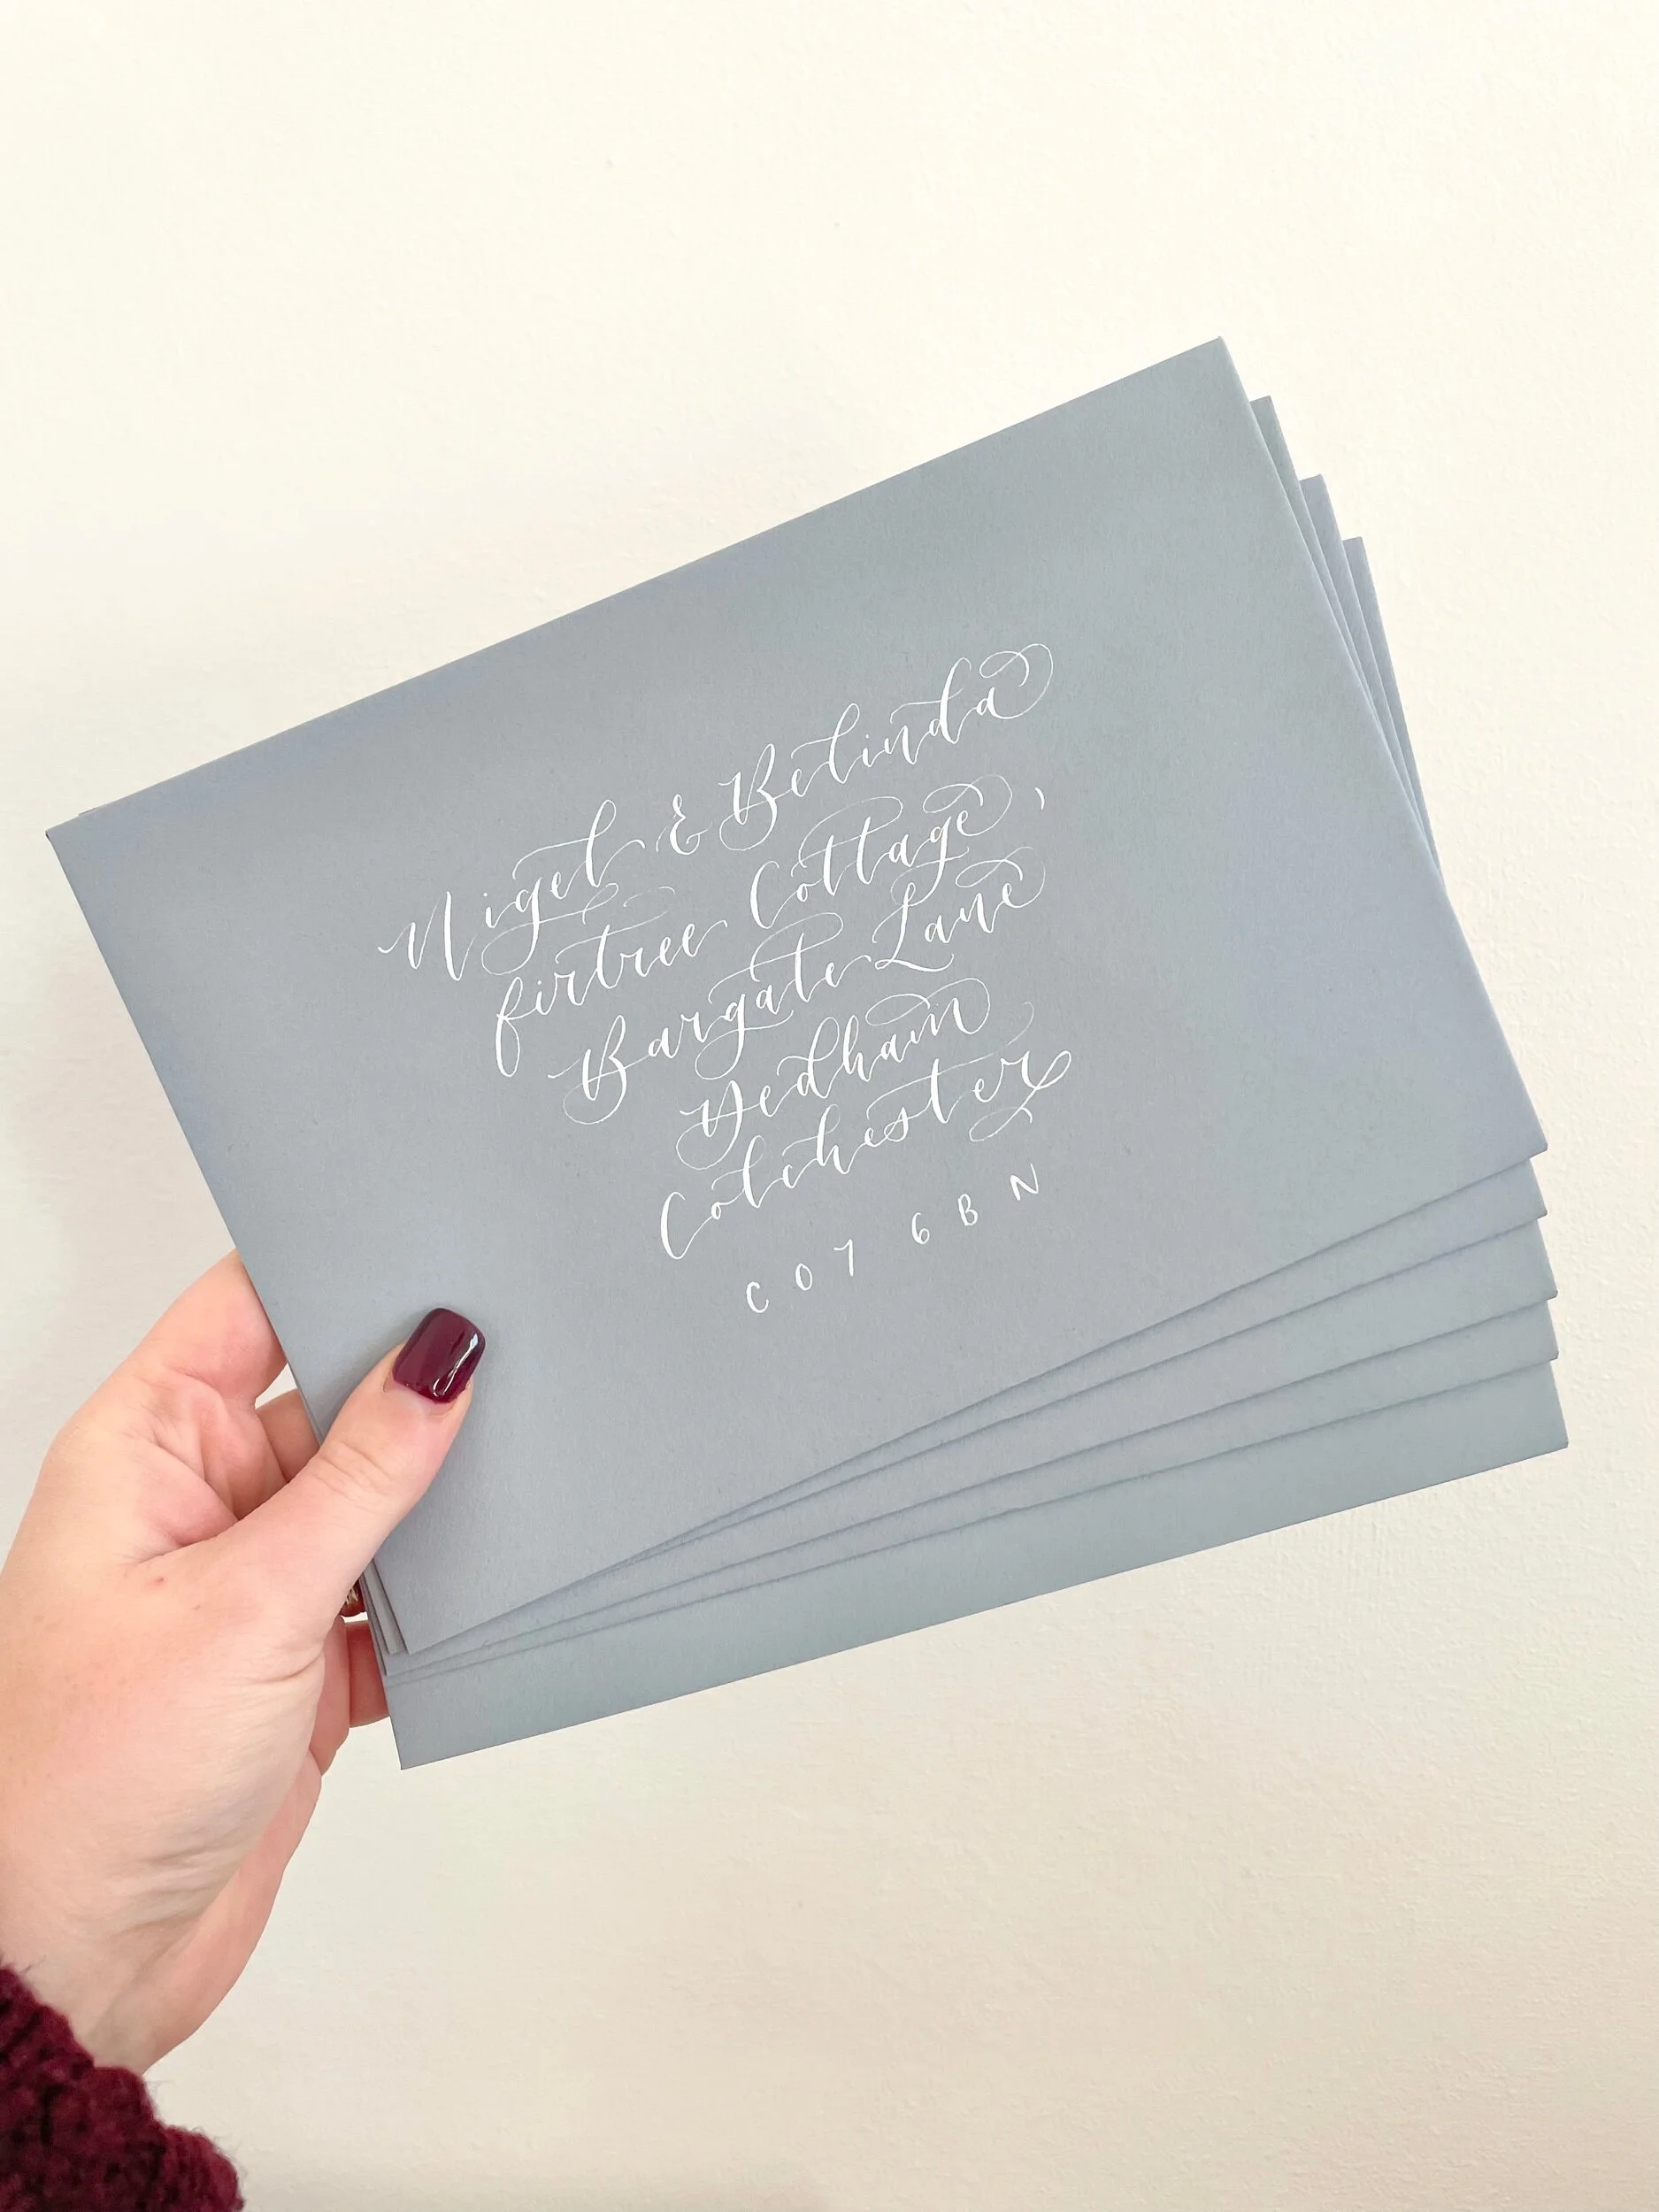 Nigel & Belinda
firtree Cottage,
Bargate Lane
Dedham
Colchester
CO7 6BN